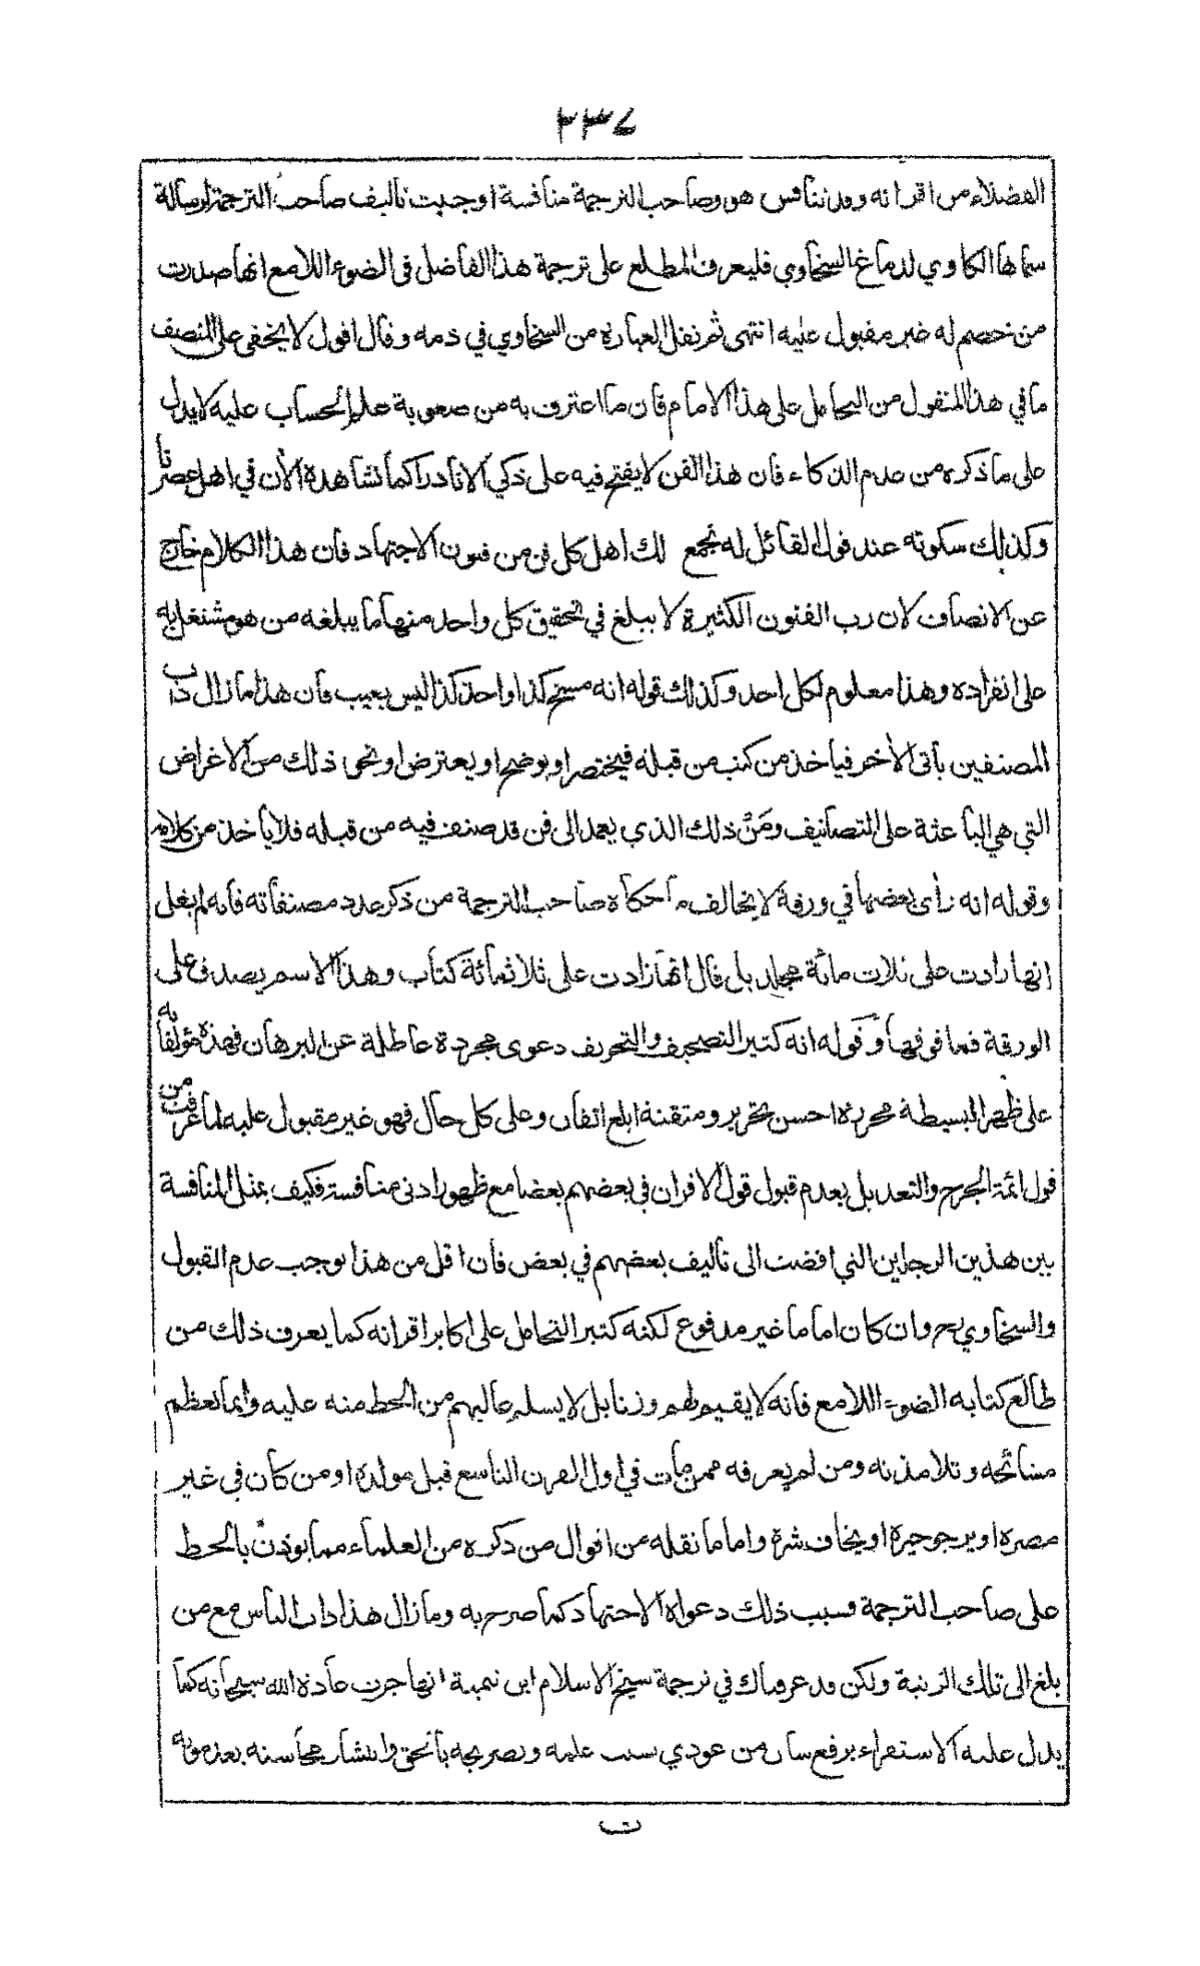 ٢٣٤
الفضلاء من اقرانه وقد تنافس هو وصاحب الترجمة منافسة اوجبت تأليف صاحب الترجمة لرسالة
سماها الكاوي لدماغ السخاوي فليعرف المطلع على ترجمة هذا الفاضل في الضوء اللامع انها صدرت
من خصم له غير مقبول عليه انتهى ثم نقل العبارة من السخاوي في ذمه وقال اقول لا يخفى على المنصف
ما في هذا المنقول من التحامل على هذا الامام فان ما اعترف به من صعوبة علم الحساب عليه لا يدل
على ما ذكره من عدم الذكاء فان هذا الفن لا يفتح فيه على ذكي الا نادرا كما نشاهده الآن في اهل عصرنا
وكذلك سكوته عند قول القائل له نجمع لك اهل كل فن من فنون الاجتهاد فان هذا الكلام خارج
عن الانصاف لان رب الفنون الكثيرة لا يبلغ في تحقيق كل واحد منها ما يبلغه من هو مشتغل به
على انفراده وهذا معلوم لكل احد وكذلك قوله انه مسخ كذا واخذ كذا ليس بعيب فان هذا ما زال دأب
المصنفين يأتي الآخر فيأخذ من كتب من قبله فيختصر او يوضح او يعترض او نحو ذلك من الاغراض
التي هي الباعثة على التصانيف ومن ذلك الذي يعمد الى فن قد صنف فيه من قبله فلا يأخذ من كلامه
وقوله انه رأى بعضها في ورقة لا يخالف ما حكاه صاحب الترجمة من ذكر عدد مصنفاته فانه لم يقل
انها زادت على ثلاث مائة مجلد بل قال انها زادت على ثلاثمائة كتاب وهذا الاسم يصدق على
الورقة فما فوقها وقوله انه كثير التصحيف والتحريف دعوى مجردة عاطلة عن البرهان فهذه مؤلفاته
على ظهر البسيطة محررة احسن تحرير ومتقنة ابلغ اتقان وعلى كل حال فهو غير مقبول عليه لما عرفت من
قول ائمة الجرح والتعديل بعدم قبول قول الاقران في بعضهم بعضا مع ظهور ادنى منافسة فكيف بمثل المنافسة
بين هذين الرجلين التي افضت الى تأليف بعضهم في بعض فان اقل من هذا يوجب عدم القبول
والسخاوي رح وان كان اماما غير مدفوع لكنه كثير التحامل على اكابر اقرانه كما يعرف ذلك من
طالع كتابه الضوء اللامع فانه لا يقيم لهم وزنا بل لا يسلم غالبهم من الحط منه عليه وانما يعظم
مشائخه وتلامذته ومن لم يعرفه ممن مات في اول القرن التاسع قبل مولده او من كان في غير
مصره او يرجو خيره او يخاف شره واما ما نقله من اقوال من ذكره من العلماء مما يؤذن بالحط
على صاحب الترجمة فسبب ذلك دعواه الاجتهاد كما صرح به وما زال هذا دأب الناس مع من
بلغ الى تلك الرتبة ولكن قد عرفناك في ترجمة شيخ الاسلام ابن تيمية انها جرت عادة الله سبحانه كما
يدل عليه الاستقراء برفع شأن من عودي بسبب علمه وتصريحه بالحق وانتشار محاسنه بعد موته
ت